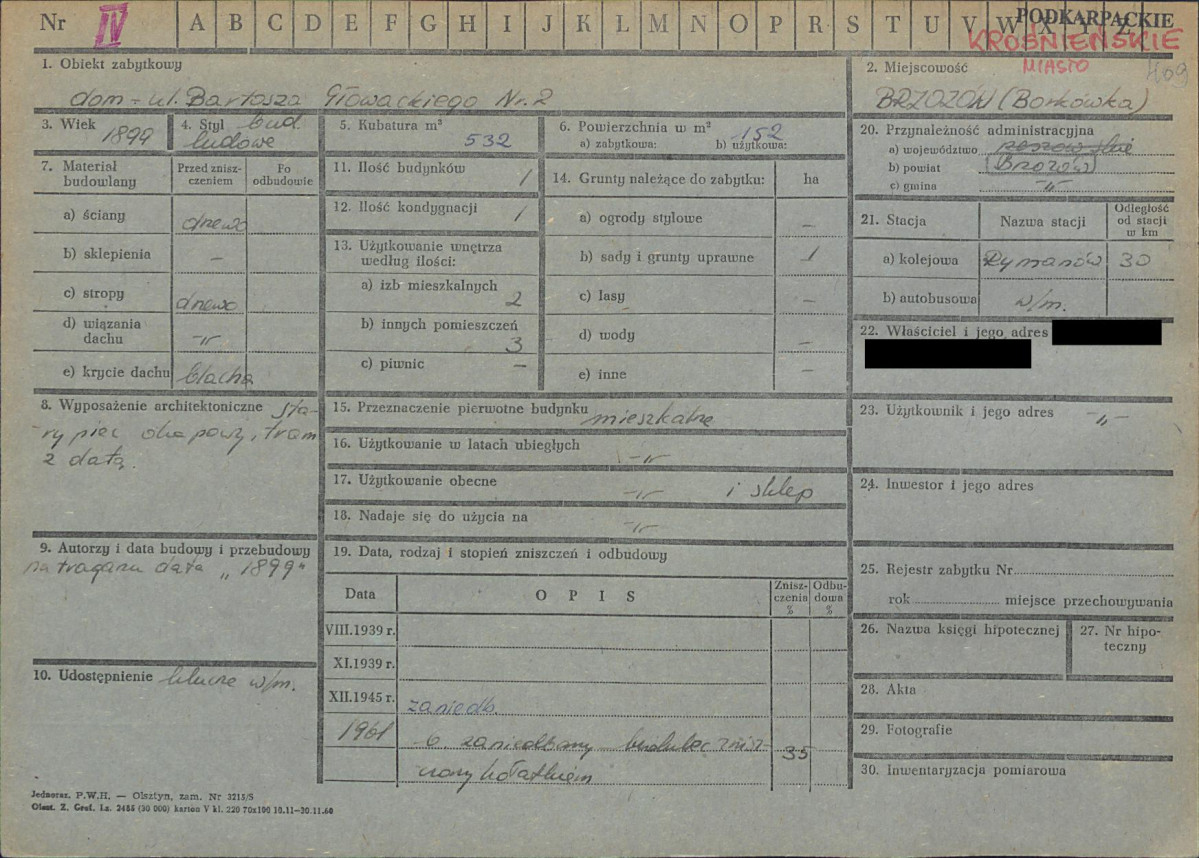 Nr IV A B C D E F G H I J K L M N O P R S T U V W X Y Z
PODKARPACKIE
KROŚNIEŃSKIE
MIASTO 409
1. Obiekt zabytkowy
dom - ul. Bartosza Głowackiego Nr. 2
2. Miejscowość
BRZOZÓW (Borkówka)
3. Wiek 1899
4. Styl bud. ludowe
5. Kubatura m³ 532
6. Powierzchnia w m² 152
a) zabytkowa: b) użytkowa:
7. Materiał budowlany
Przed zniszczeniem
Po odbudowie
a) ściany drewo
b) sklepienia –
c) stropy drewo
d) wiązania dachu -"-
e) krycie dachu blacha
8. Wyposażenie architektoniczne sta-
ry piec okapowy, tram
z datą.
9. Autorzy i data budowy i przebudowy
na traganu data „1899"
10. Udostępnienie klucze w/m.
11. Ilość budynków 1
12. Ilość kondygnacji 1
13. Użytkowanie wnętrza według ilości:
a) izb mieszkalnych 2
b) innych pomieszczeń 3
c) piwnic –
14. Grunty należące do zabytku: ha
a) ogrody stylowe –
b) sady i grunty uprawne 1
c) lasy –
d) wody –
e) inne –
15. Przeznaczenie pierwotne budynku mieszkalne
16. Użytkowanie w latach ubiegłych -"-
17. Użytkowanie obecne -"- i sklep
18. Nadaje się do użycia na -"-
19. Data, rodzaj i stopień zniszczeń i odbudowy
Data OPIS Zniszczenia % Odbudowa %
VIII.1939 r.
XI.1939 r.
XII.1945 r. zaniedb.
1961 b. zaniedbany budulec znisz- 35
czony kołatkiem
20. Przynależność administracyjna
a) województwo rzeszowskie
b) powiat Brzozów
c) gmina -"-
21. Stacja Nazwa stacji Odległość od stacji w km
a) kolejowa Rymanów 30
b) autobusowa w/m.
22. Właściciel i jego adres
23. Użytkownik i jego adres -"-
24. Inwestor i jego adres
25. Rejestr zabytku Nr
rok miejsce przechowywania
26. Nazwa księgi hipotecznej
27. Nr hipoteczny
28. Akta
29. Fotografie
30. Inwentaryzacja pomiarowa
Jednoraz. P.W.H. — Olsztyn, zam. Nr 3215/S
Olszt. Z. Graf. Lz. 2486 (30 000) karton V kl. 220 70x100 10.11—30.11.60